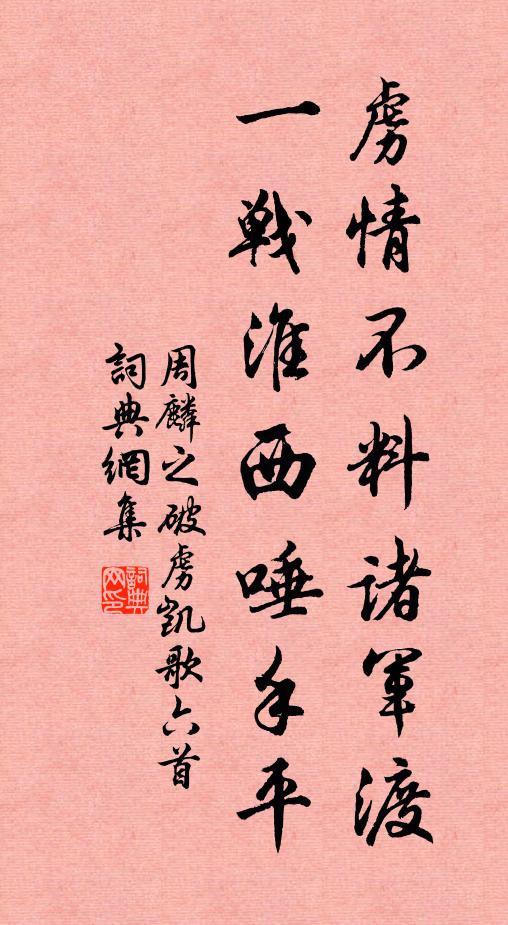 虜情不料諸軍渡
一戰淮西唾手平
周麟之破虜凱歌六首
詞典網集
詞典网印